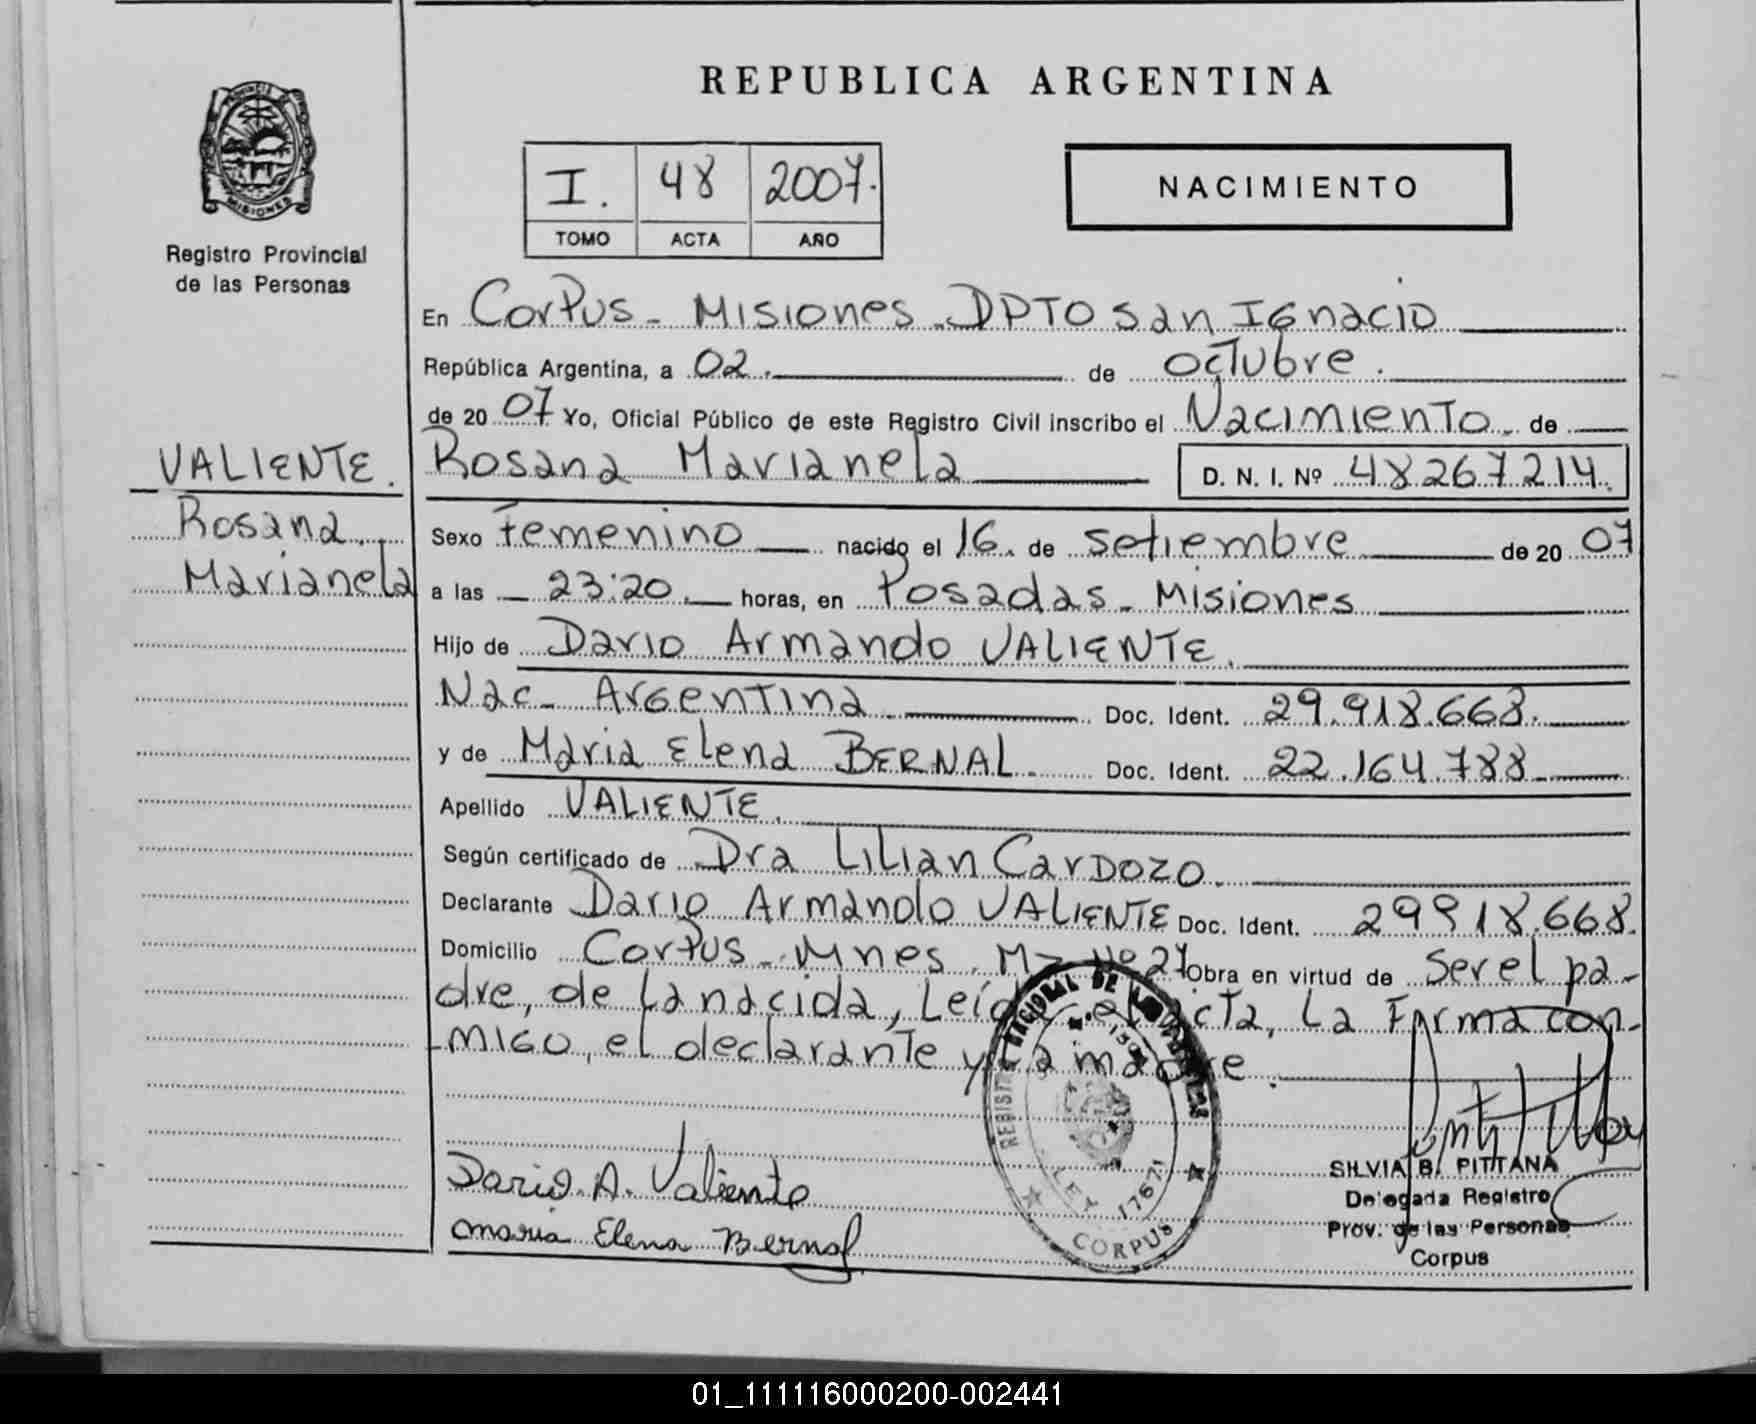 REPUBLICA ARGENTINA
PROVINCIA DE
MISIONES
Registro Provincial
de las Personas
I. 48 2007.
TOMO ACTA AÑO
NACIMIENTO
En Corpus - Misiones - DPTO San Ignacio
República Argentina, a 02. de octubre.
de 20 07 Yo, Oficial Público de este Registro Civil inscribo el Nacimiento de
VALIENTE.
Rosana
Marianela
Rosana Marianela D. N. I. Nº 48267214.
Sexo femenino nacido el 16. de setiembre de 20 07
a las 23:20. horas, en Posadas - Misiones
Hijo de Dario Armando VALIENTE.
Nac - Argentina Doc. Ident. 29.918.668.
y de Maria Elena BERNAL. Doc. Ident. 22.164.788
Apellido VALIENTE.
Según certificado de Dra Lilian Cardozo.
Declarante Dario Armando VALIENTE Doc. Ident. 29918.668.
Domicilio Corpus - Mnes. Mz Nº 27 Obra en virtud de Ser el pa-
dre, de la nacida, Leída el acta, la Firma con-
migo, el declarante y la madre.
REGISTRO NACIONAL DE LAS PERSONAS
LEY 17671
CORPUS
Dario A. Valiente
Maria Elena Bernal
SILVIA B. PITTANA
Delegada Registro
Prov. de las Personas
Corpus
01_111116000200-002441